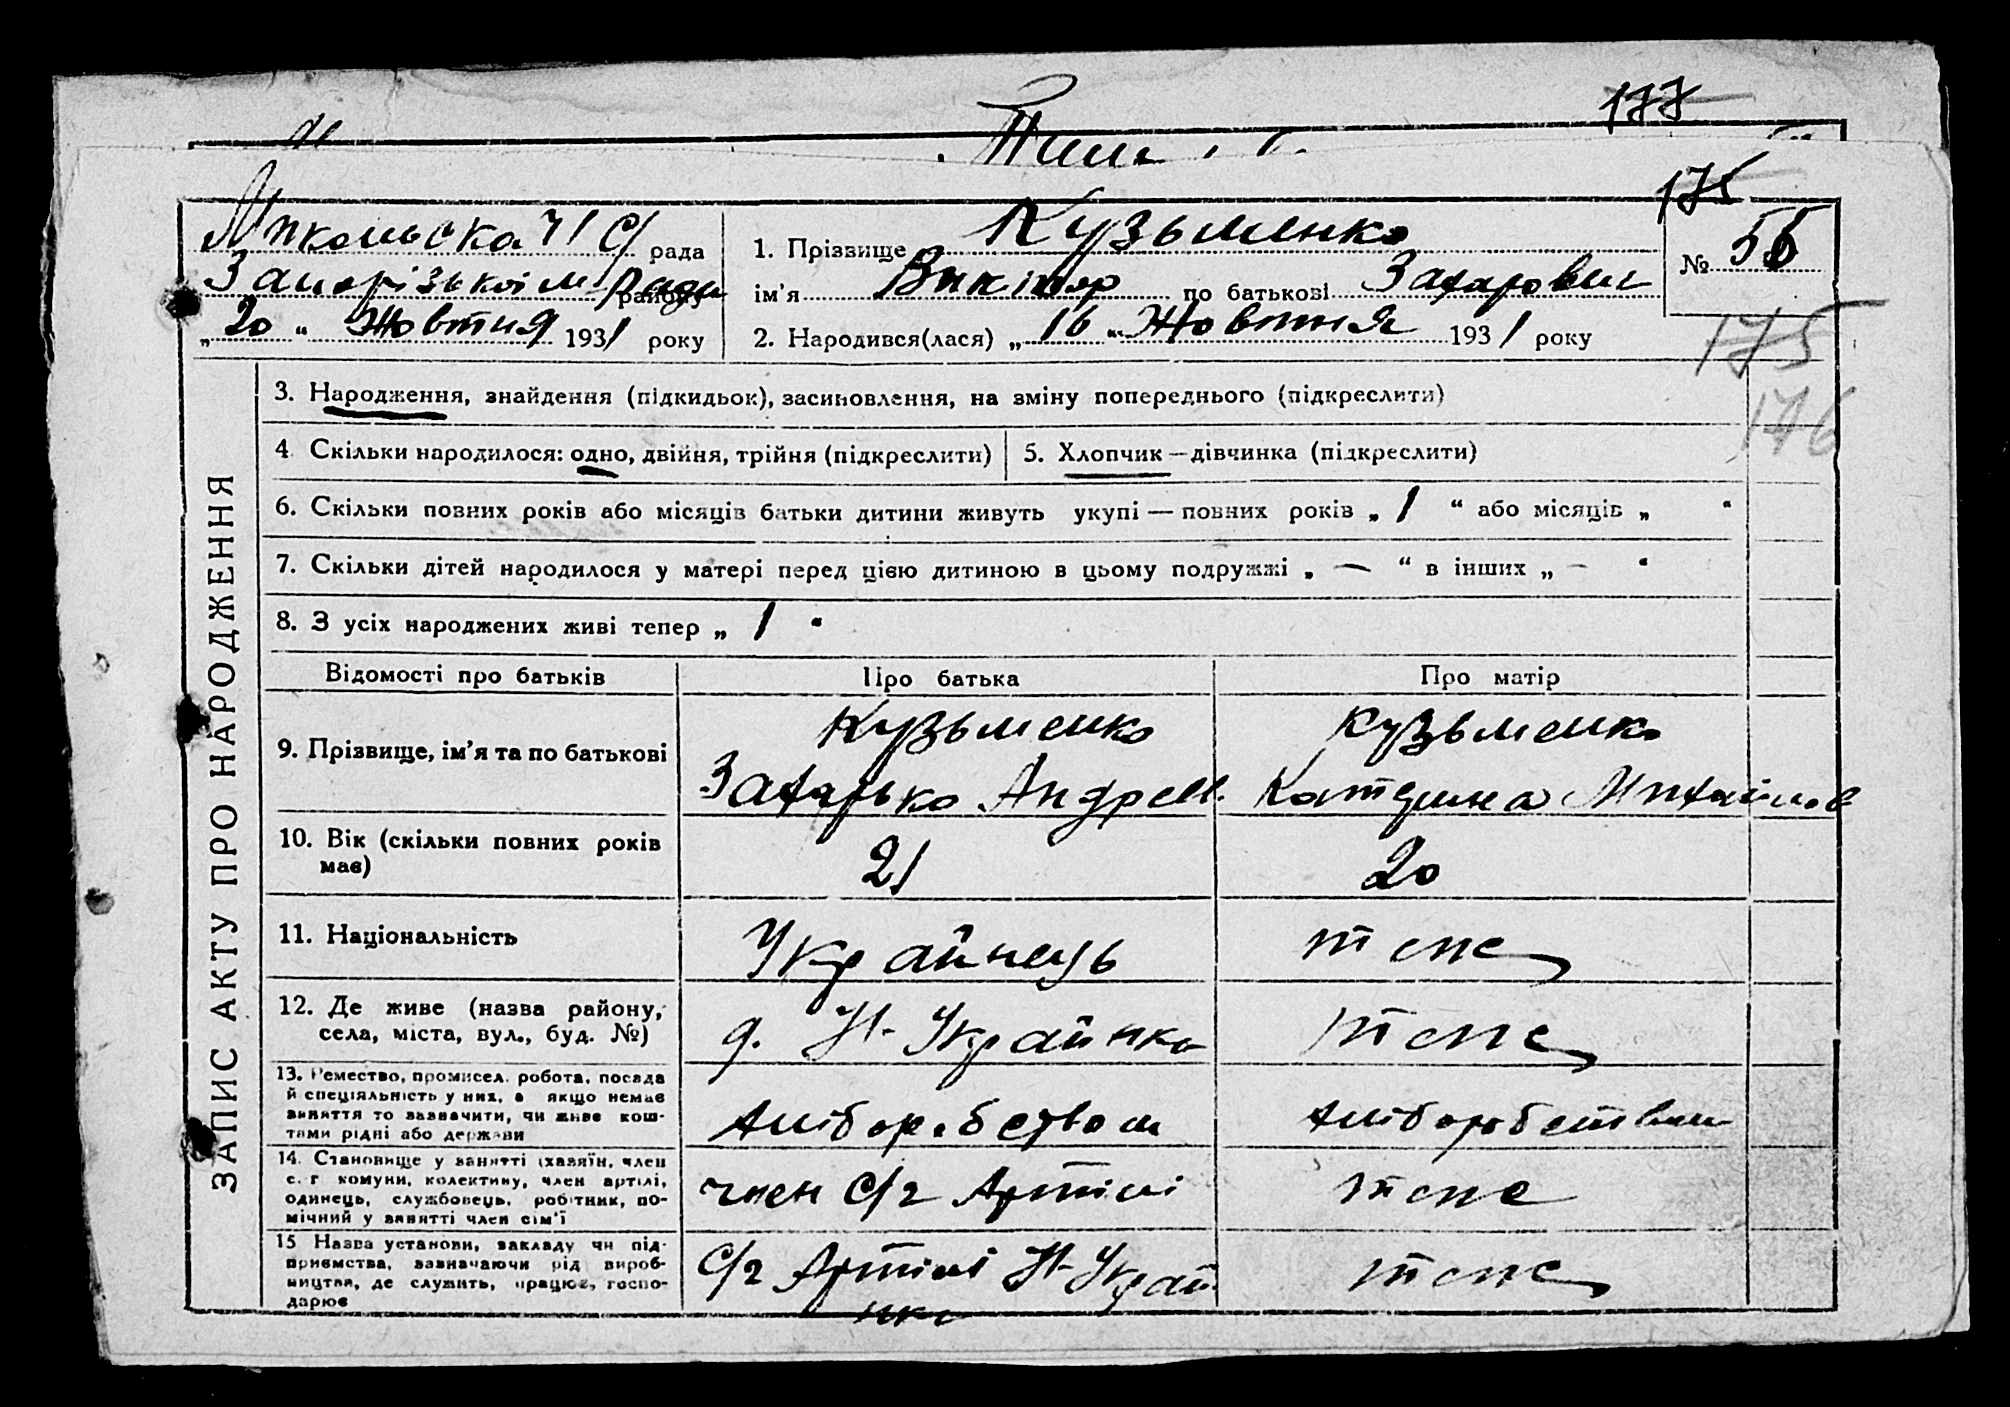 177
175
Микольська ЧІ С/ рада
Запорізької м/ради району
„20“ Жовтня 1931 року
1. Прізвище Кузьменко
ім’я Віктор по батькові Захарович
2. Народився(лася) „16“ Жовтня 1931 року
№ 55
175
176
ЗАПИС АКТУ ПРО НАРОДЖЕННЯ
3. Народження, знайдення (підкидьок), засиновлення, на зміну попереднього (підкреслити)
4. Скільки народилося: одно, двійня, трійня (підкреслити)
5. Хлопчик—дівчинка (підкреслити)
6. Скільки повних років або місяців батьки дитини живуть укупі — повних років „ 1 “ або місяців „ “
7. Скільки дітей народилося у матері перед цією дитиною в цьому подружжі „ — “ в інших „ – “
8. З усіх народжених живі тепер „ 1 “
Відомості про батьків Про батька Про матір
9. Прізвище, ім’я та по батькові
Кузьменко
Захарько Андреев.
Кузьменко
Катерина Михайлов
10. Вік (скільки повних років
має)
21
20
11. Національність
Українець
теж
12. Де живе (назва району,
села, міста, вул., буд. №)
д. Н-Українка
теж
13. Ремество, промисел, робота, посада
й спеціяльність у них, а якщо немає
заняття то зазначити, чи живе кош-
тами рідні або держави
хліборобством
хліборобством
14. Становище у занятті (хазяїн, член
с.-г комуни, колективу, член артілі,
одинець, службовець, робітник, по-
мічний у занятті член сім’ї
член С/г Артілі
теж
15 Назва установи, закладу чи під-
приємства, зазначаючи рід вироб-
ництва, де служить, працює, госпо-
дарює
С/г Артілі Н-Украй
нка
теж